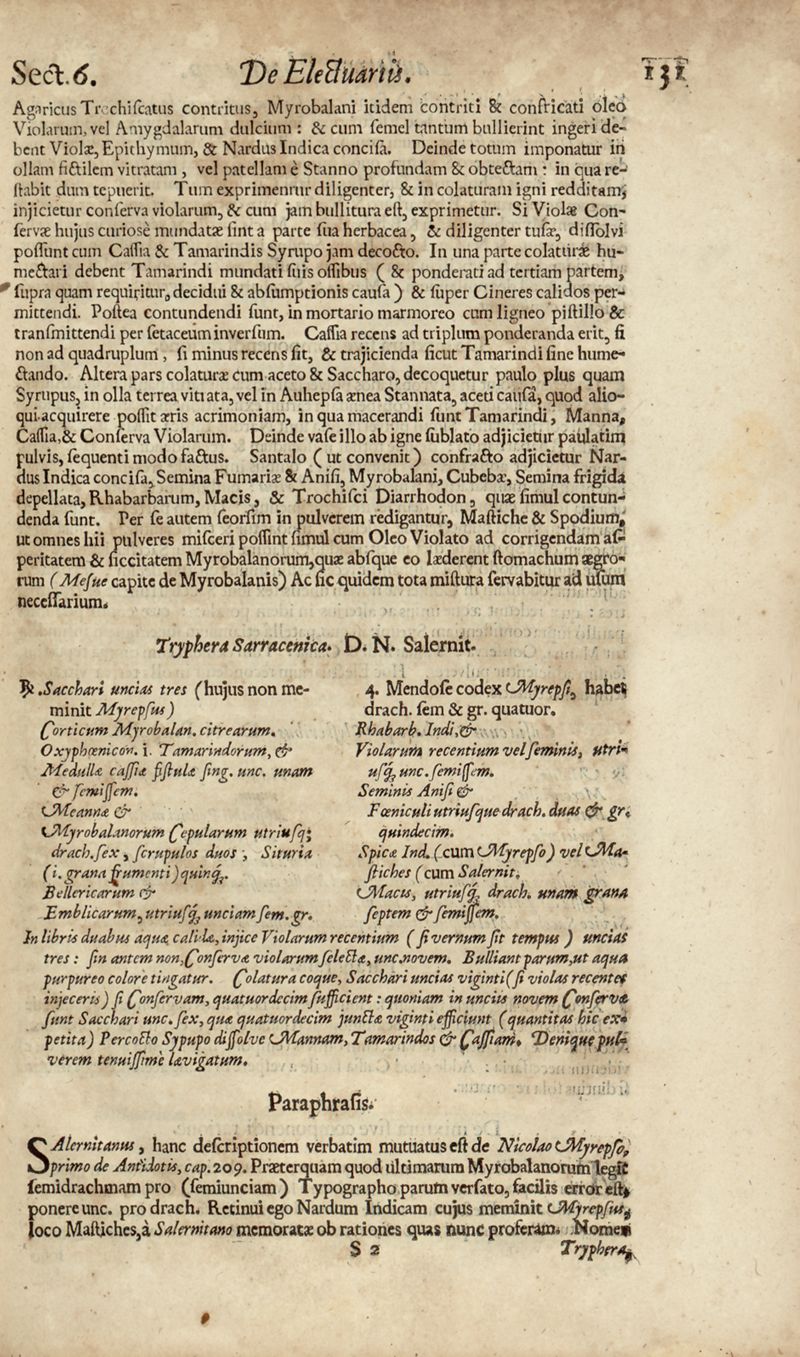 Sect. 6. De Electuariis. 131
Agaricus Trochiſcatus contritus, Myrobalani itidem contriti & confricati oleo
Violarum, vel Amygdalarum dulcium : & cum ſemel tantum bullierint ingeri de-
bent Violæ, Epithymum, & Nardus Indica conciſa. Deinde totum imponatur in
ollam fictilem vitratam , vel patellam è Stanno profundam & obtectam : in qua re-
ſtabit dum tepuerit. Tum exprimenrur diligenter, & in colaturam igni redditam,
injicietur conſerva violarum, & cum jam bullitura eſt, exprimetur. Si Violæ Con-
ſervæ hujus curiosè mundatæ ſint a parte ſua herbacea, & diligenter tuſæ, diſſolvi
poſſunt cum Caſſia & Tamarindis Syrupo jam decocto. In una parte colaturæ hu-
mectari debent Tamarindi mundati ſuis oſſibus ( & ponderati ad tertiam partem,
ſupra quam requiritur, decidui & abſumptionis cauſa ) & ſuper Cineres calidos per-
mittendi. Poſtea contundendi ſunt, in mortario marmoreo cum ligneo piſtillo &
tranſmittendi per ſetaceum inverſum. Caſſia recens ad triplum ponderanda erit, ſi
non ad quadruplum , ſi minus recens ſit, & trajicienda ſicut Tamarindi ſine hume-
ctando. Altera pars colaturæ cum aceto & Saccharo, decoquetur paulo plus quam
Syrupus, in olla terrea vitiata, vel in Auhepſa ænea Stannata, aceti cauſa, quod alio-
qui acquirere poſſit æris acrimoniam, in qua macerandi ſunt Tamarindi, Manna,
Caſſia, & Conſerva Violarum. Deinde vaſe illo ab igne ſublato adjicietur paulatim
pulvis, ſequenti modo factus. Santalo ( ut convenit ) confracto adjicietur Nar-
dus Indica conciſa, Semina Fumariæ & Aniſi, Myrobalani, Cubebæ, Semina frigida
depellata, Rhabarbarum, Macis, & Trochiſci Diarrhodon, quæ ſimul contun-
denda ſunt. Per ſe autem ſeorſim in pulverem redigantur, Maſtiche & Spodium,
ut omnes hii pulveres miſceri poſſint ſimul cum Oleo Violato ad corrigendam aſ-
peritatem & ſiccitatem Myrobalanorum, quæ abſque eo læderent ſtomachum ægro-
rum ( Meſue capite de Myrobalanis) Ac ſic quidem tota miſtura ſervabitur ad uſum
neceſſarium.
Tryphera Sarracenica. D. N. Salernit.
℞. Sacchari uncias tres (hujus non me-
minit Myrepſus )
Corticum Myrobalan. citrearum.
Oxyphœnicoν. i. Tamarindorum, &
Medullæ caſſiæ fiſtulæ ſing. unc. unam
& ſemiſſem.
Meannæ &
Myrobalanorum Cepularum utriuſq;
drach. ſex, ſcrupulos duos ; Situria
(i. grana frumenti) quinq;.
Bellericarum &
Emblicarum, utriuſq; unciam ſem. gr.
4. Mendoſe codex Myrepſi, habet
drach. ſem & gr. quatuor.
Rhabarb. Indi, &
Violarum recentium vel ſeminis, utri-
uſq; unc. ſemiſſem.
Seminis Aniſi &
Fœniculi utriuſque drach. duas & gr.
quindecim.
Spicæ Ind. (cum Myrepſo) vel Ma-
ſtiches (cum Salernit.
Macis, utriuſq; drach. unam grana
ſeptem & ſemiſſem.
In libris duabus aquæ calidæ, injice Violarum recentium ( ſi vernum ſit tempus ) uncias
tres : ſin antem non, Conſervæ violarum ſelectæ, unc. novem. Bulliant parum, ut aqua
purpureo colore tingatur. Colatura coque, Sacchari uncias viginti (ſi violas recentes
injeceris) ſi Conſervam, quatuordecim ſufficient : quoniam in unciis novem Conſervæ
ſunt Sacchari unc. ſex, quæ quatuordecim junctæ viginti efficiunt (quantitas hic ex-
petita) Percocto Sypupo diſſolve Mannam, Tamarindos & Caſſiam. Denique pul-
verem tenuiſſime lævigatum.
Paraphraſis.
SAlernitanus, hanc deſcriptionem verbatim mutuatus eſt de Nicolao Myrepſo,
primo de Antidotis, cap. 209. Præterquam quod ultimarum Myrobalanorum legit
ſemidrachmam pro (ſemiunciam) Typographo parum verſato, facilis error eſt,
ponere unc. pro drach. Retinui ego Nardum Indicam cujus meminit Myrepſus,
loco Maſtiches, à Salernitano memoratæ ob rationes quas nunc proferam. Nomen
S 2 Tryphera,